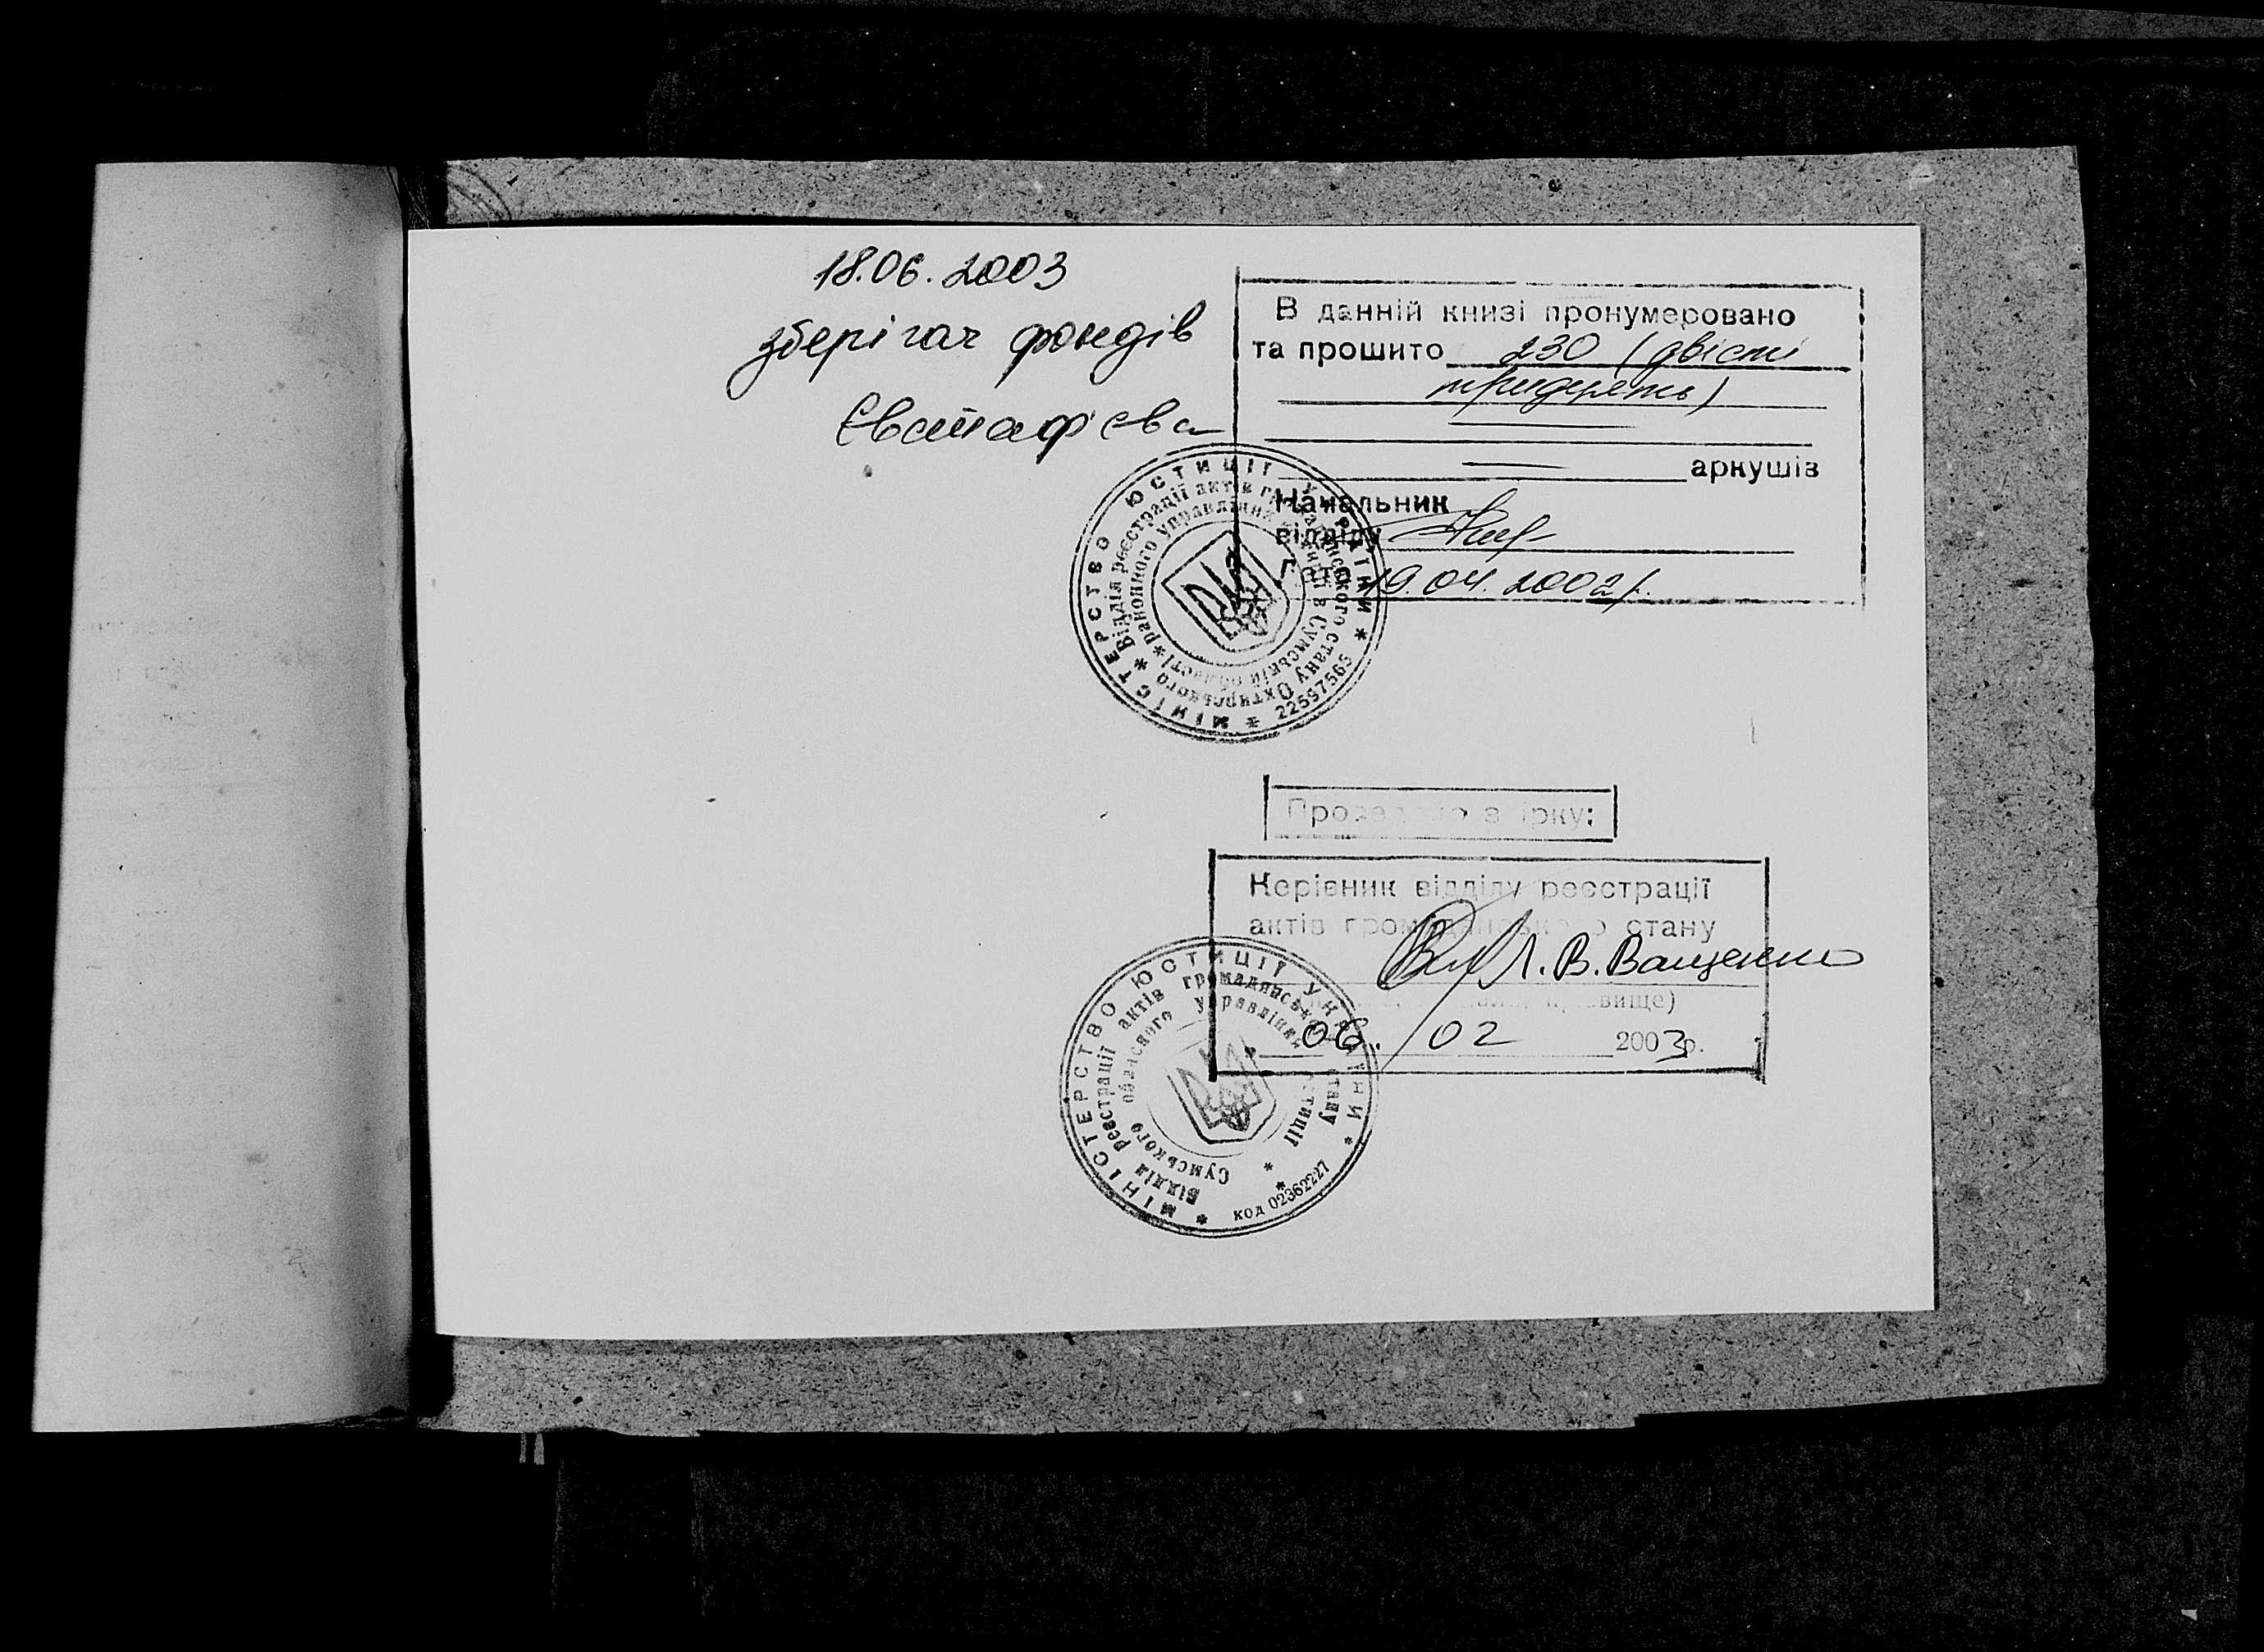 18.06.2003
зберігач фондів
Євстаф'єва
В данній книзі пронумеровано
та прошито 230 (двісті
тридцять)
аркушів
Начальник
відділу
Дата 19.04.2002р.
МІНІСТЕРСТВО ЮСТИЦІЇ УКРАЇНИ * 22597565 *
* Відділ реєстрації актів громадянського стану Охтирського
* районного управління юстиції в Сумській області
Проведено звірку:
Керівник відділу реєстрації
актів громадянського стану
Л.В.Ващенко
прізвище)
06. 02 2003р.
* МІНІСТЕРСТВО ЮСТИЦІЇ УКРАЇНИ * код 02362227
Відділ реєстрації актів громадянського стану *
Сумського обласного управління юстиції *